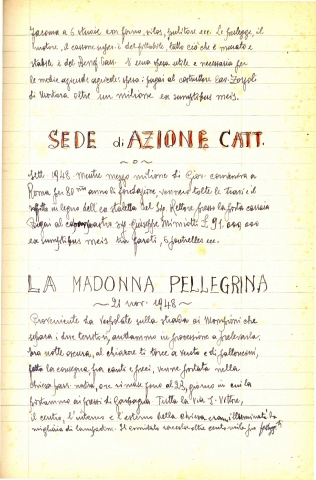 Yacoma a 6 strade con forno, silos, pulitore ecc. Le pulegge, il
motore, il cassone super. è del fittabile, tutto ciò che è murato e
stabile è del Benef. Parr. È una opera utile e necessaria per
le medie aziende agricole spesi i pagai al costruttore Cav. Zorzoli
di Mortara oltre un milione ex sumptibus meis.
SEDE di AZIONE CATT.
Sett. 1948. Mentre mezzo milione di Giov. conveniva a
Roma per 80mo anno di fondazione, vennero tolte le travi e il
soffitto in legno dell'ex stalletta del Sig. Rettore presso la porta carraia
Pagai al capomastro sig. Giuseppe Mimiotti £ 91.000,000
ex sumptibus meis tra pareti, 5 putrelles ecc.
LA MADONNA PELLEGRINA
~ 21 nov. 1948 ~
Proveniente da Verbolate sulla strada ai Mompioni che
separa i due territori, andammo in processione a prelevarla.
Era notte oscura, al chiarore di torce a vento e di palloncini,
fatta la consegna, fra canti e preci, venne portata nella
chiesa parr. nostra, ore rimase fino al 22, giorno in cui la
portammo ai prossi di Garbagna. Tutta la via S. Vittore,
il centro, l'interno e l'esterno della chiesa erano illuminati da
migliaia di lampadine. Il comitato raccolse oltre cento mila per